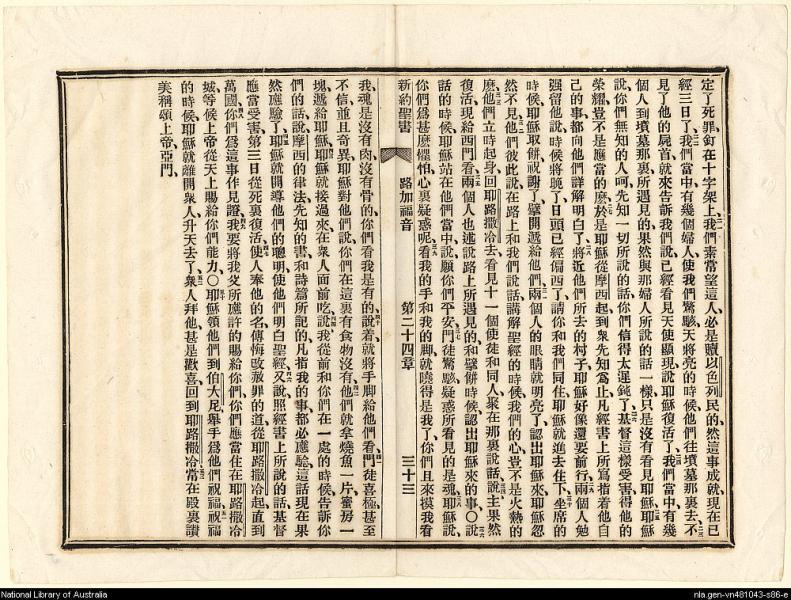 定了死罪、釘在十字架上、我們素常望這人、必是贖以色列民的、然這事成就、現在已
經三日了、我們當中有幾個婦人使我們驚駭、天將亮的時候他們往墳墓那裏去、不
見了他的屍首就來告訴我們說、已經看見天使顯現、說耶穌復活了、我們當中有幾
個人到墳墓那裏所遇見的、果然與那婦人所說的話一樣、只是沒有看見耶穌、耶穌
說、你們無知的人呵、先知一切所說的話、你們信得太遲鈍了、基督這樣受害、得他的
榮耀、豈不是應當的麽、於是耶穌從摩西起到衆先知爲止、凡經書上所寫指着他自
己的事、都向他們詳解明白了、將近他們所去的村子、耶穌好像還要前行、兩個人勉
强留他、說、時候將晚了、日頭已經偏西了、請你和我們同住、耶穌就進去住下、坐席的
時候、耶穌取餅祝謝了、擘開遞給他們、兩個人的眼睛就明亮了、認出耶穌來、耶穌忽
然不見、他們彼此說、在路上和我們說話、講解聖經的時候、我們的心豈不是火熱的
麽、他們立時起身、回耶路撒冷去、看見十一個使徒和同人聚在那裏說話、說、主果然
復活、現給西門看、兩個人也述說路上所遇見的、和擘餅時候認出耶穌來的事、○說
話的時候、耶穌站在他們當中、說、願你們平安、門徒驚駭疑惑、所看見的是魂、耶穌說、
你們爲甚麽懼怕、心裏疑惑呢、看我的手和我的脚、就曉得是我了、你們且來摸我看
新約聖書
路加福音
第二十四章
三十三
我、魂是沒有肉沒有骨的、你們看我是有的、說着就將手脚給他們看、門徒喜極、甚至
不信、並且奇異、耶穌對他們說、你們在這裏有食物沒有、他們就拿燒魚一片、蜜房一
塊、遞給耶穌、耶穌就接過來、在衆人面前吃、說、我從前和你們在一處的時候、告訴你
們的話、說、摩西的律法先知的書和詩篇所記的、凡指我的事都必應驗、這話現在果
然應驗了、耶穌就開導他們的聰明、使他們明白聖經、又說、照經書上所說的話、基督
應當受害、第三日從死裏復活、使人奉他的名、傳悔改赦罪的道、從耶路撒冷起直到
萬國、你們爲這事作見證、我要將我父所應許的賜給你們、你們應當住在耶路撒冷
城、等候上帝從天上賜給你們能力、○耶穌領他們到伯大尼、舉手爲他們祝福、祝福
的時候、耶穌就離開衆人、升天去了、衆人拜他、甚是歡喜、回到耶路撒冷、常在殿裏讚
美稱頌上帝、亞門、
National Library of Australia
nla.gen-vn481043-s86-e